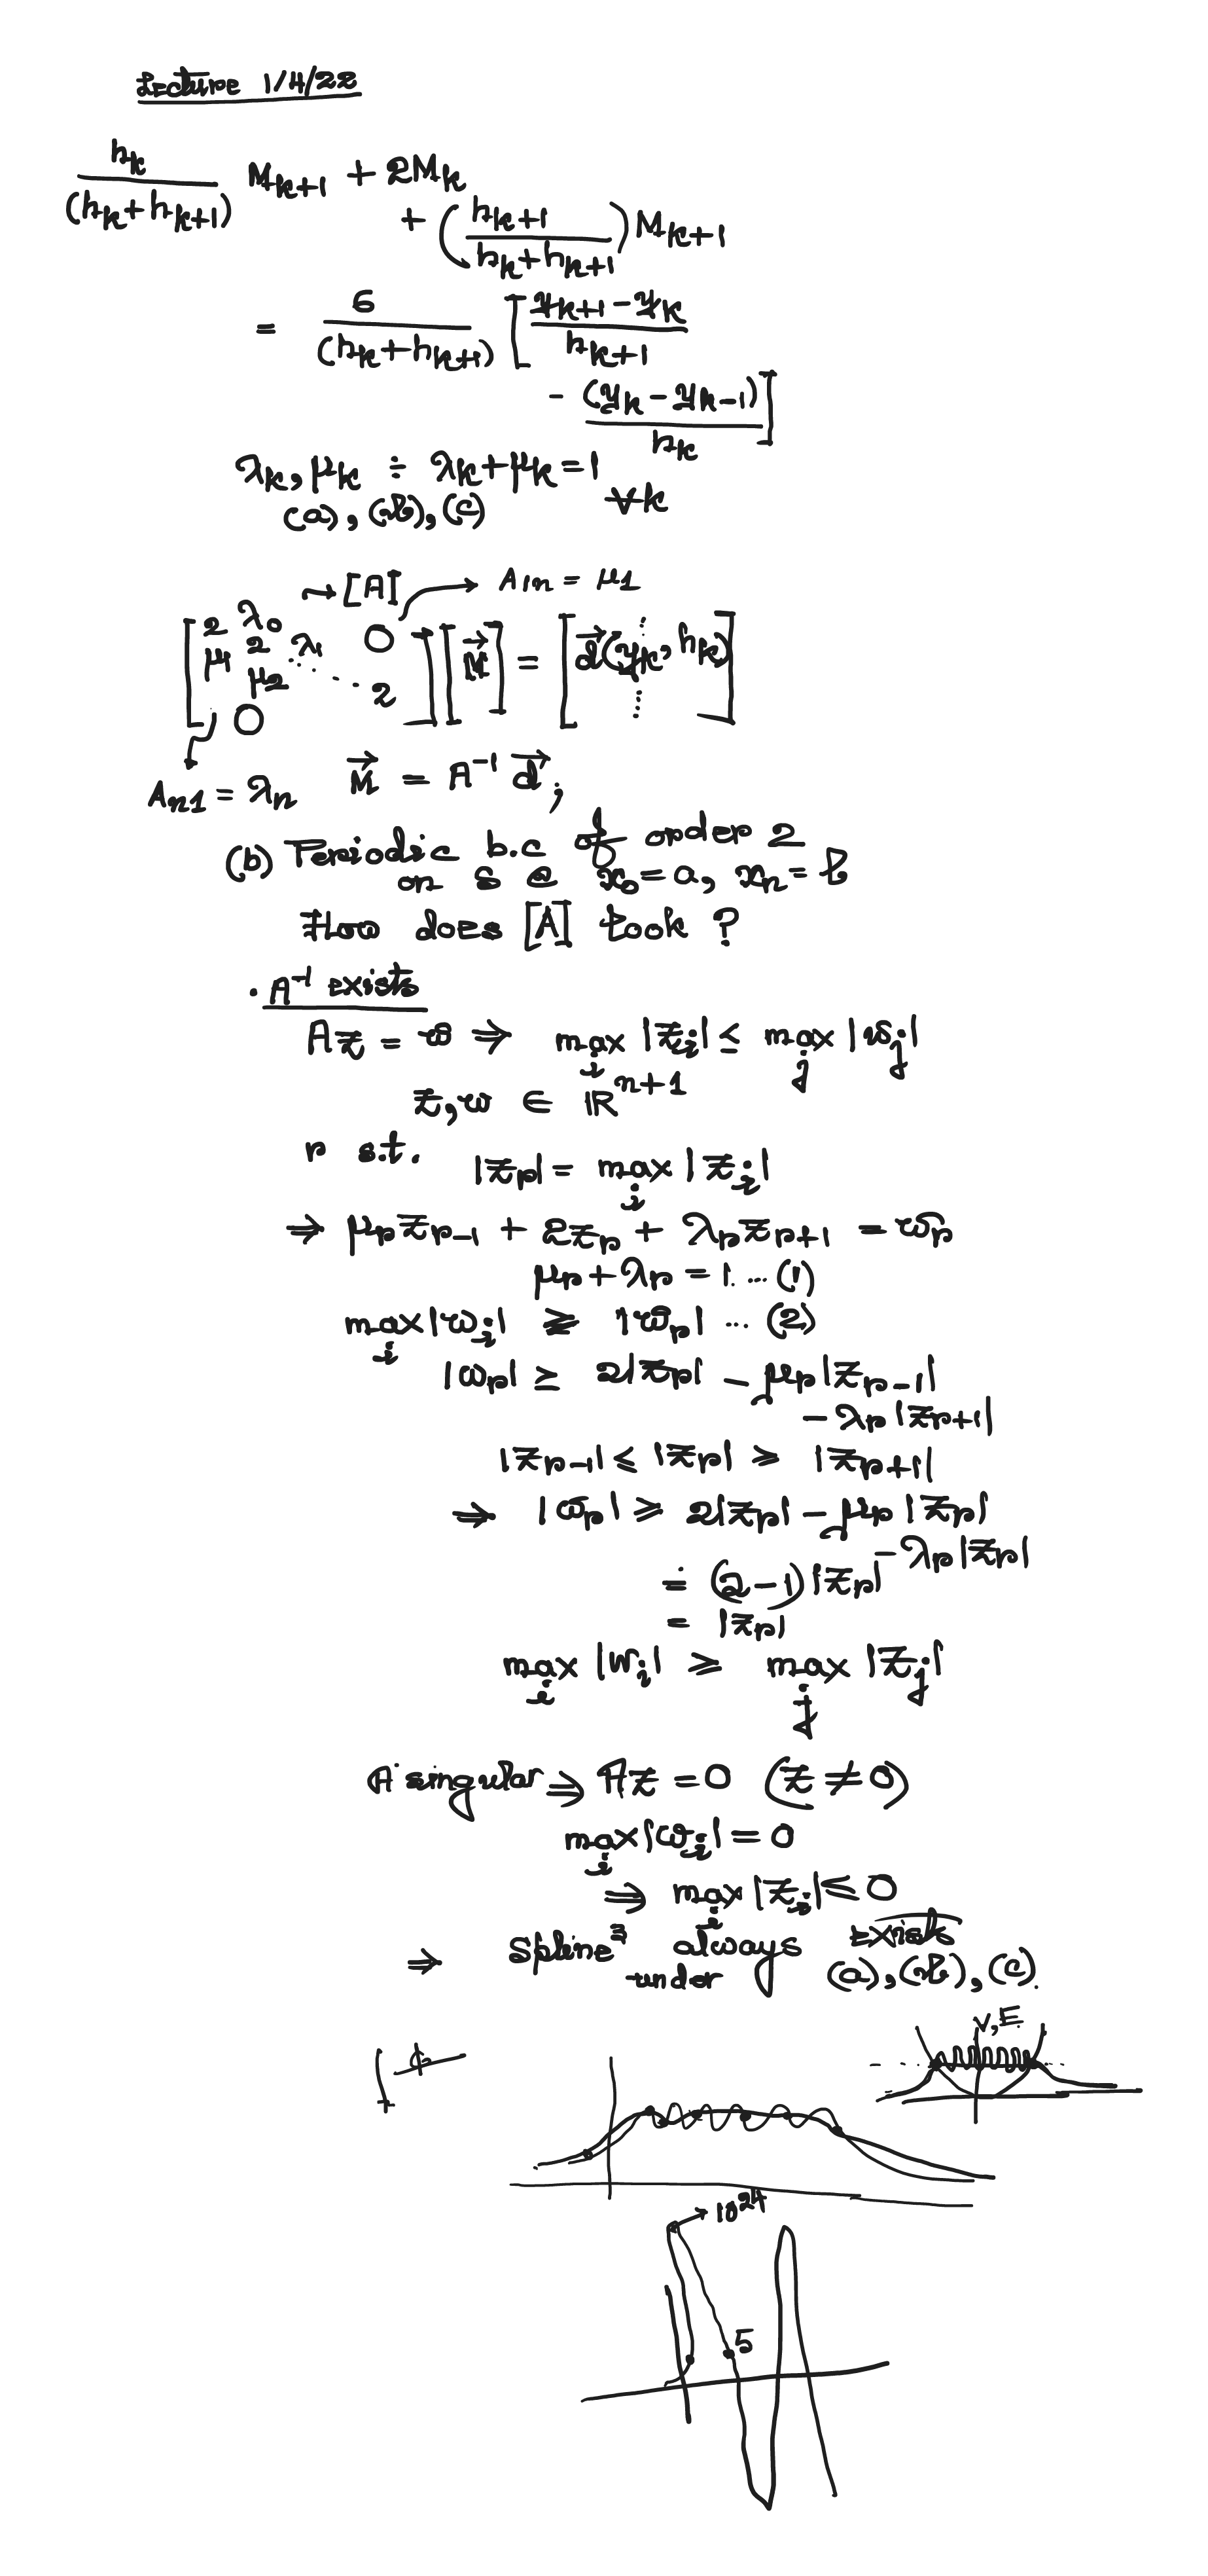 Lecture 1/4/22
h_k/(h_k+h_{k+1}) M_{k+1} + 2M_k
+ (h_{k+1}/(h_k+h_{k+1})) M_{k+1}
= 6/(h_k+h_{k+1}) [ (y_{k+1} - y_k)/h_{k+1}
- (y_k - y_{k-1})/h_k ]
λ_k, μ_k ÷ λ_k+μ_k = 1 ∀k
(a), (b), (c)
→ [A] → A_{1n} = μ_1
[ 2 λ_0 0
μ 2 λ_1
μ_2 ... 2
0 ] [ M⃗ ] = [ d⃗(y_k, h_k) ]
A_{n1} = λ_n M⃗ = A^{-1} d⃗ ;
(b) Periodic b.c of order 2
on S @ x_0 = a, x_n = b
How does [A] look ?
. A^{-1} exists
Az = w ⇒ max_i |z_i| ≤ max_j |w_j|
z, w ∈ ℝ^{n+1}
r s.t. |z_r| = max_i |z_i|
⇒ μ_r z_{r-1} + 2z_r + λ_r z_{r+1} = w_r
μ_r + λ_r = 1 ... (1)
max_i |w_i| ≥ |w_r| ... (2)
|w_r| ≥ 2|z_r| - μ_r |z_{r-1}|
- λ_r |z_{r+1}|
|z_{r-1}| ≤ |z_r| ≥ |z_{r+1}|
⇒ |w_r| ≥ 2|z_r| - μ_r |z_r|
- λ_r |z_r|
= (2-1) |z_r|
= |z_r|
max_i |w_i| ≥ max_j |z_j|
A singular ⇒ Az = 0 (z ≠ 0)
max_i |w_i| = 0
⇒ max_i |z_i| ≤ 0
⇒ Spline^3 always exists
under (a), (b), (c).
V, E
10^24
5